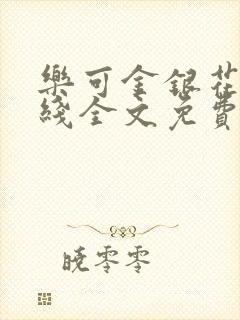 樂可金銀花
綫全文免費
曉零零